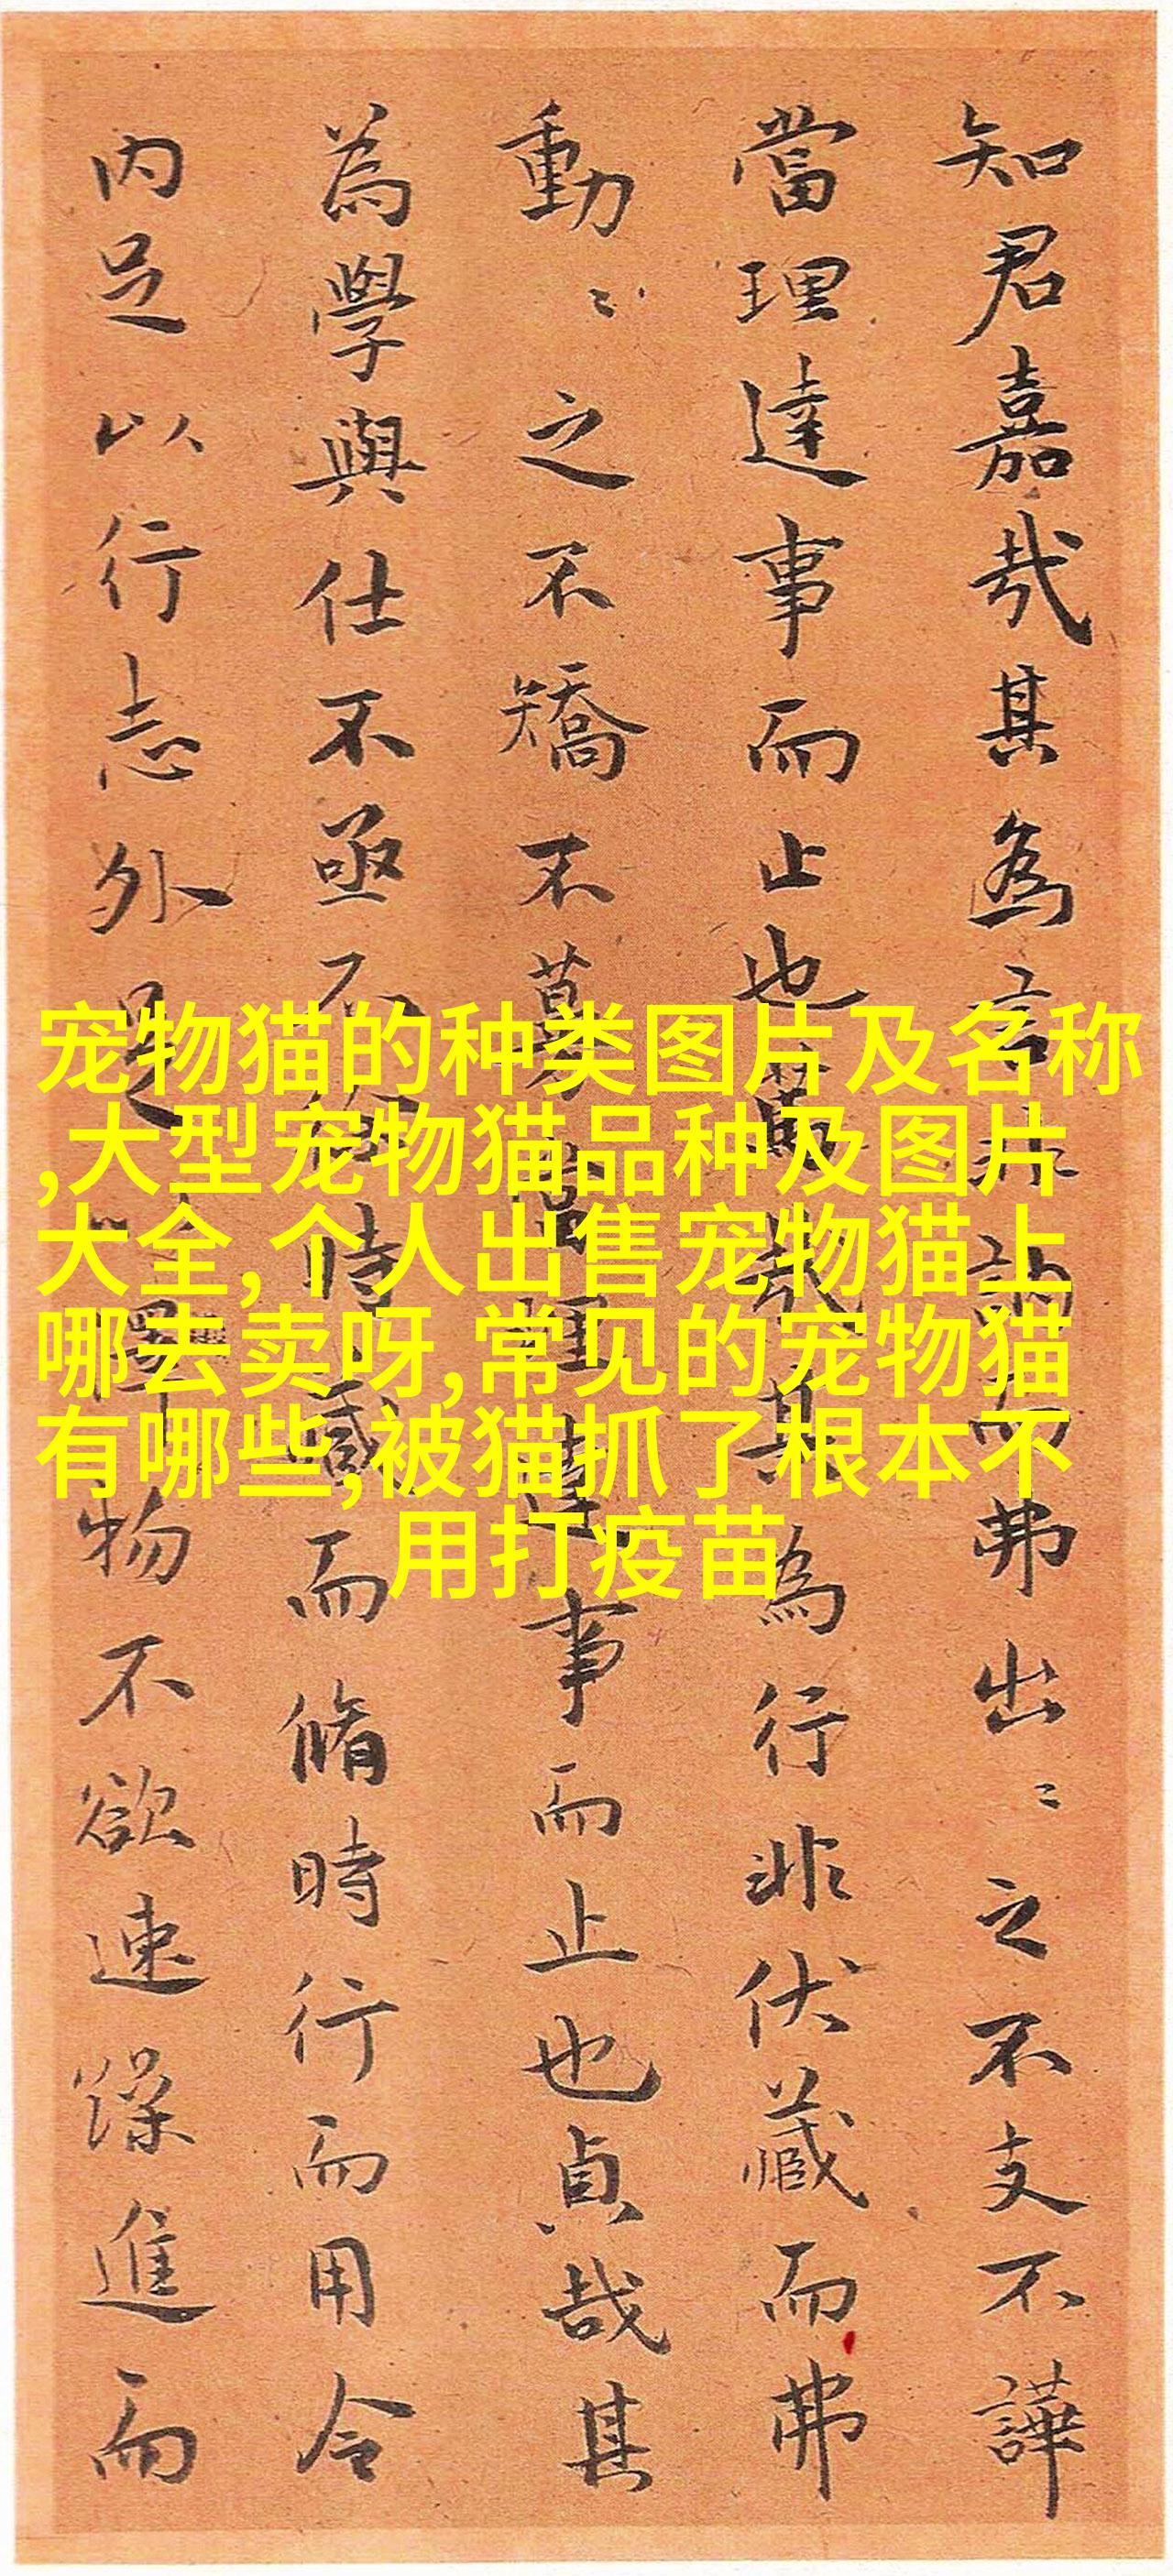 知君嘉哉其為言非訥而弗出〻之不支不譁
當理達事而止也哉其為行非伏藏而弗
動〻之不矯不募當理達事而止也貞哉其
為學與仕不亟不徐時藏而脩時行而用令
内足以行志外足以澤物不欲速躁進而
宠物猫的种类图片及名称
,大型宠物猫品种及图片
大全,个人出售宠物猫上
哪去卖呀,常见的宠物猫
有哪些,被猫抓了根本不
用打疫苗